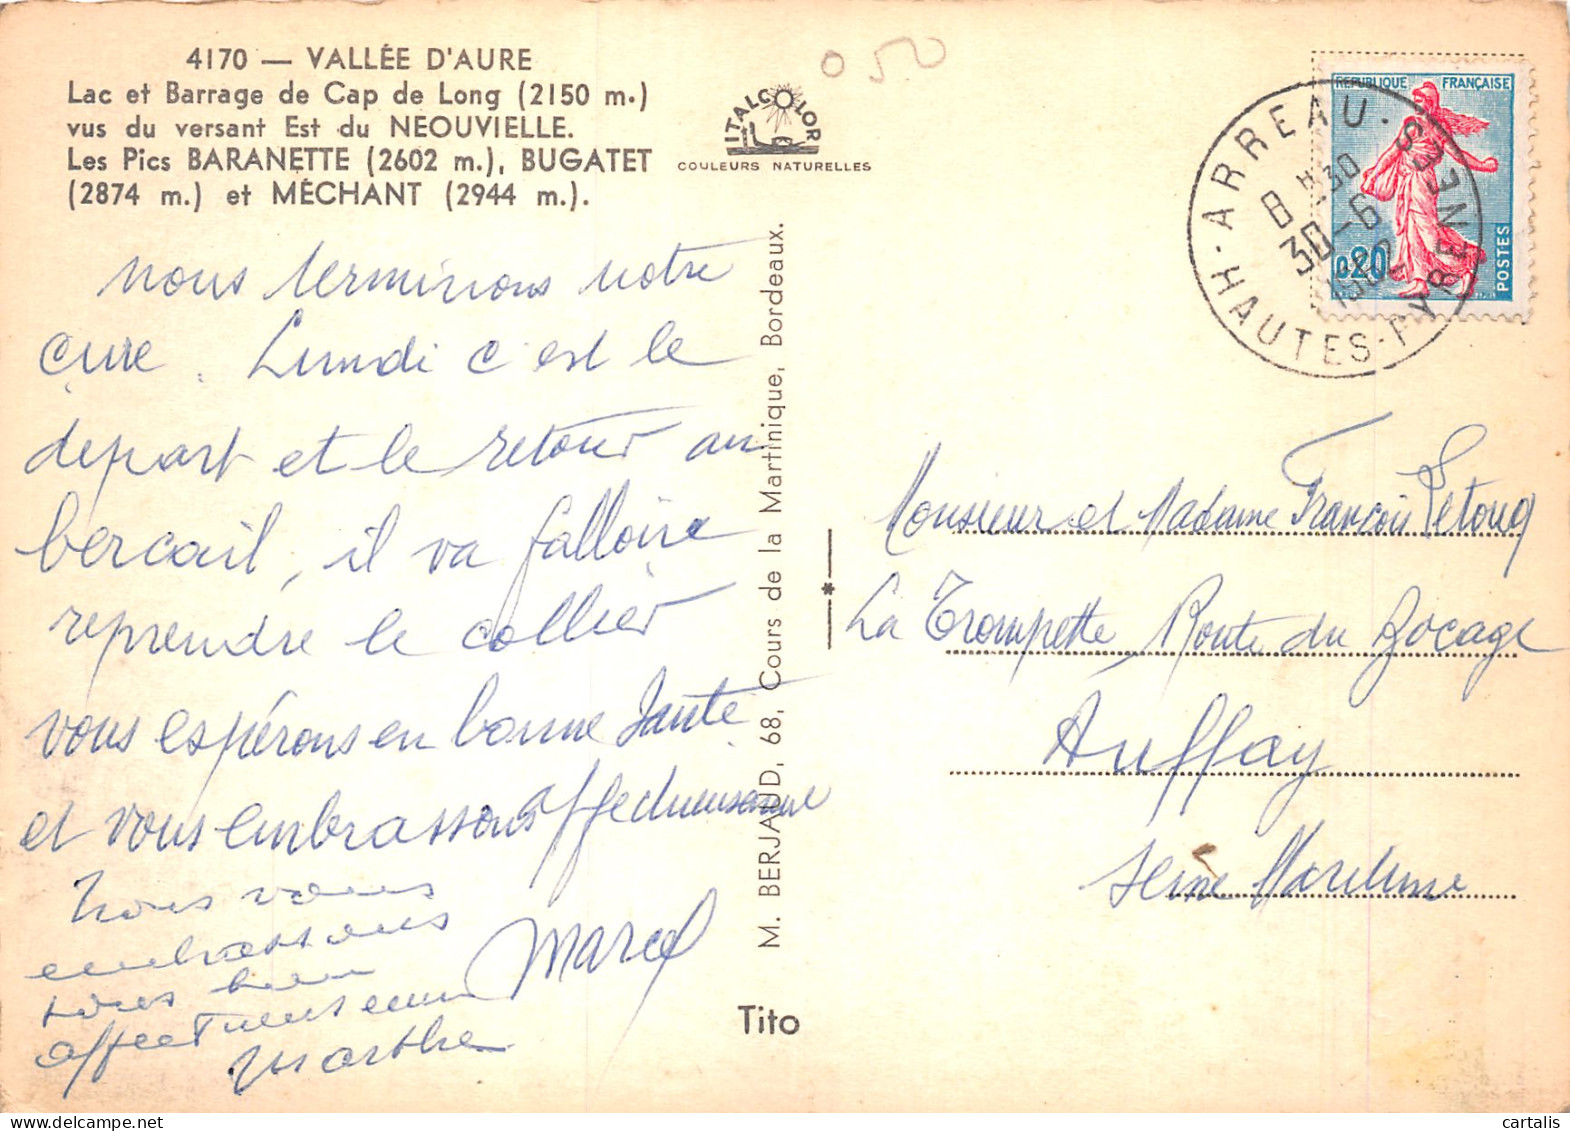 4170 — VALLÉE D'AURE
Lac et Barrage de Cap de Long (2150 m.)
vus du versant Est du NEOUVIELLE.
Les Pics BARANETTE (2602 m.), BUGATET
(2874 m.) et MÉCHANT (2944 m.).
ITALCOLOR
COULEURS NATURELLES
050
RÉPUBLIQUE FRANÇAISE
0,20
POSTES
ARREAU
HAUTES-PYRENEES
8 H 30
30-6
1962
nous terminons notre
cure. Lundi c'est le
depart et le retour au
bercail, il va falloire
reprendre le collier
vous espérons en bonne santé
et vous embrassons affectueusement
Nous vous
embrassons
tous bien
affectueusement
Marcel
Marthe
M. BERJAUD, 68, Cours de la Martinique, Bordeaux.
Tito
Monsieur et Madame François Petoug
La Trompette, Route du Bocage
Auffay
Seine Maritime
cartalis
www.delcampe.net